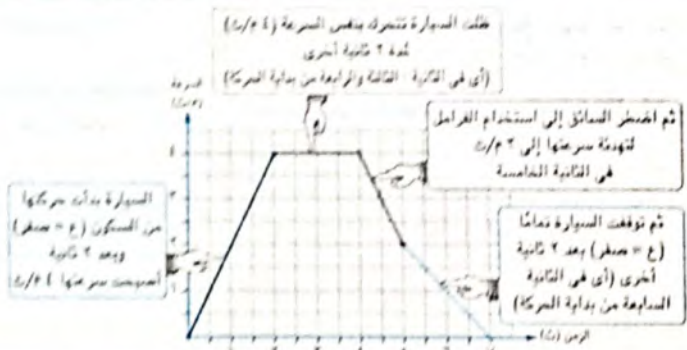 ظلت السيارة تتحرك بنفس السرعة (٤ م/ث)
لمدة ٢ ثانية أخرى
(أى فى الثانية الثالثة والرابعة من بداية الحركة)
السرعة
(م/ث)
ثم اضطر السائق إلى استخدام الفرامل
لتهدئة سرعتها إلى ٢ م/ث
فى الثانية الخامسة
السيارة بدأت حركتها
من السكون (ع = صفر)
وبعد ٢ ثانية
أصبحت سرعتها ٤ م/ث
ثم توقفت السيارة تمامًا
(ع = صفر) بعد ٢ ثانية
أخرى (أى فى الثانية
السابعة من بداية الحركة)
٤
٣
٢
الزمن (ث)